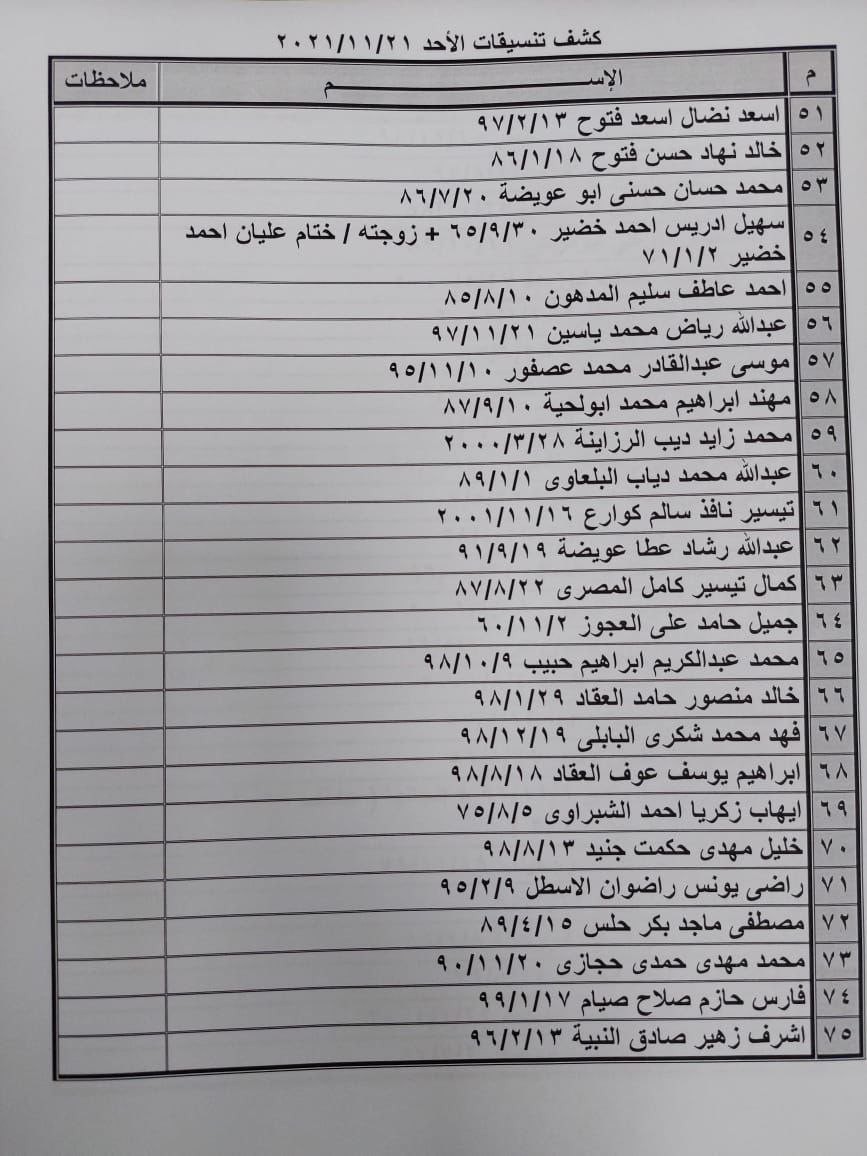 كشف تنسيقات الأحد ٢٠٢١/١١/٢١
م الإســــــــــم ملاحظات
٥١ اسعد نضال اسعد فتوح ٩٧/٢/١٣
٥٢ خالد نهاد حسن فتوح ٨٦/١/١٨
٥٣ محمد حسان حسنى ابو عويضة ٨٦/٧/٢٠
٥٤ سهيل ادريس احمد خضير ٦٥/٩/٣٠ + زوجته / ختام عليان احمد
خضير ٧١/١/٢
٥٥ احمد عاطف سليم المدهون ٨٥/٨/١٠
٥٦ عبدالله رياض محمد ياسين ٩٧/١١/٢١
٥٧ موسى عبدالقادر محمد عصفور ٩٥/١١/١٠
٥٨ مهند ابراهيم محمد ابولحية ٨٧/٩/١٠
٥٩ محمد زايد ديب الرزاينة ٢٠٠٠/٣/٢٨
٦٠ عبدالله محمد دياب البلعاوى ٨٩/١/١
٦١ تيسير نافذ سالم كوارع ٢٠٠١/١١/١٦
٦٢ عبدالله رشاد عطا عويضة ٩١/٩/١٩
٦٣ كمال تيسير كامل المصرى ٨٧/٨/٢٢
٦٤ جميل حامد على العجوز ٦٠/١١/٢
٦٥ محمد عبدالكريم ابراهيم حبيب ٩٨/١٠/٩
٦٦ خالد منصور حامد العقاد ٩٨/١/٢٩
٦٧ فهد محمد شكرى البابلى ٩٨/١٢/١٩
٦٨ ابراهيم يوسف عوف العقاد ٩٨/٨/١٨
٦٩ ايهاب زكريا احمد الشبراوى ٧٥/٨/٥
٧٠ خليل مهدى حكمت جنيد ٩٨/٨/١٣
٧١ راضى يونس راضوان الاسطل ٩٥/٢/٩
٧٢ مصطفى ماجد بكر حلس ٨٩/٤/١٥
٧٣ محمد مهدى حمدى حجازى ٩٠/١١/٢٠
٧٤ فارس حازم صلاح صيام ٩٩/١/١٧
٧٥ اشرف زهير صادق النبية ٩٦/٢/١٣